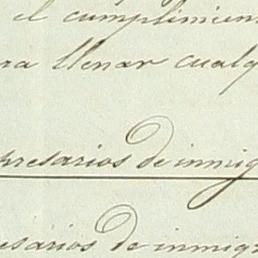 el cumplimien
ra llenar cualq
presarios de inmig
esarios de inmigr